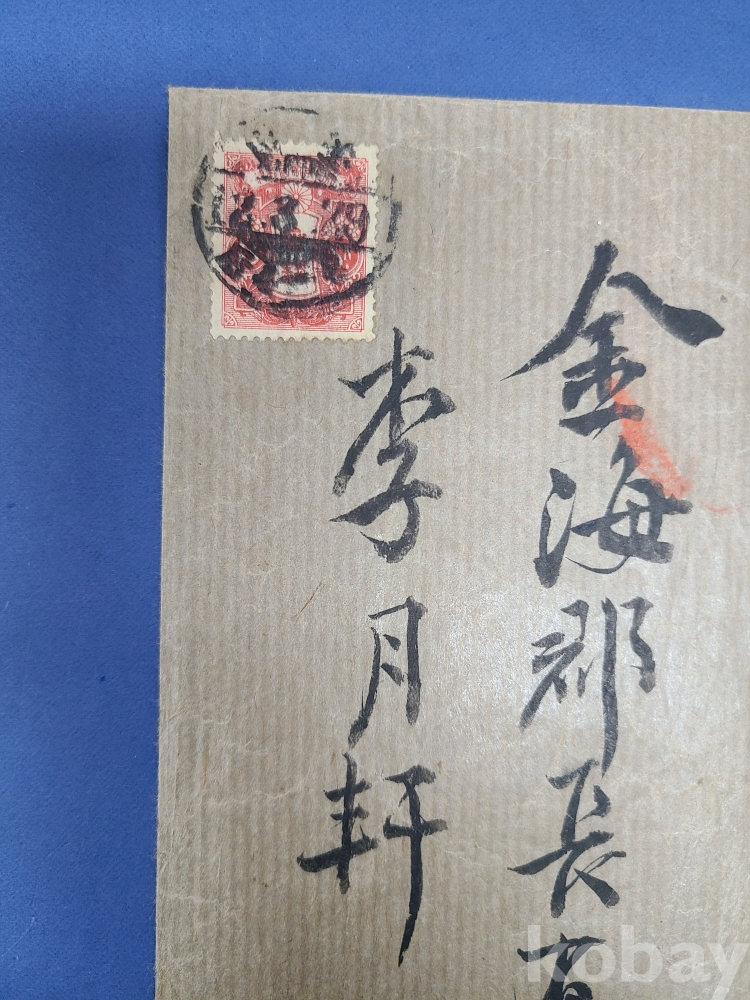 金海郡長有
李月軒
kobay